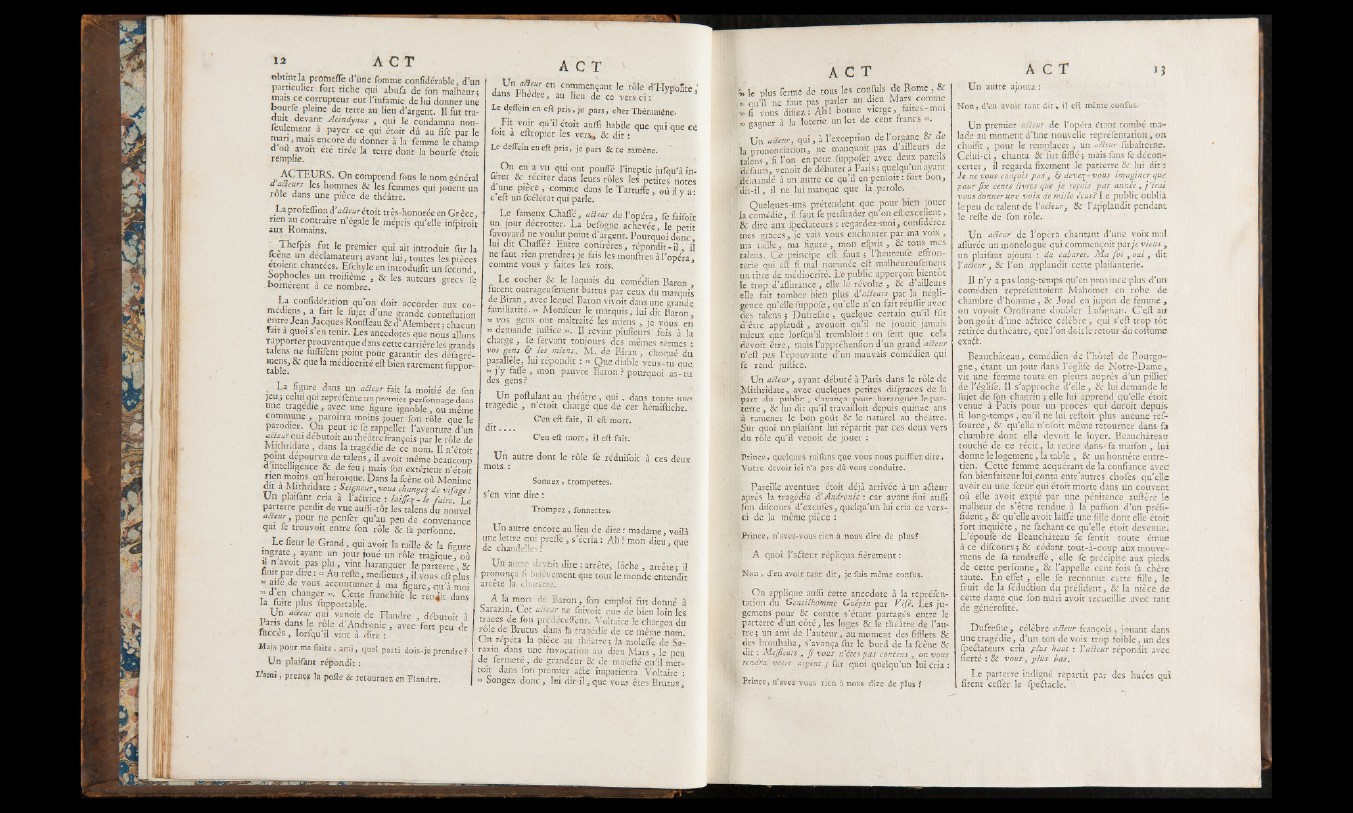 12 ACT
obtint la promesse d'une somme considérable, d'un
particulier fort riche qui abusa de son malheur;
mais ce corrupteur eut l'infamie de lui donner une
bourse pleine de terre au lieu d'argent. Il fut tra-
duit devant Acindynus, qui le condamna non-
seulement à payer ce qui étoit dû au fisc par le
mari, mais encore de donner à la femme le champ
d'où avoit été tirée la terre dont la bourse étoit
remplie.
ACTEURS. On comprend sous le nom général
d'acteurs les hommes & les femmes qui jouent un
rôle dans une pièce de théâtre.
La profession d'acteur étoit très-honorée en Grèce,
rien au contraire n'égale le mépris qu'elle inspiroit
aux Romains.
Thespis fut le premier qui ait introduit sur la
scène un déclamateur; avant lui, toutes les pièces
étoient chantées. Eschyle en introduisit un second,
Sophocles un troisième, & les auteurs grecs se
bornèrent à ce nombre.
La considération qu'on doit accorder aux co-
médiens, a fait le sujet d'une grande contestation
entre Jean Jacques Rousseau & d'Alembert; chacun
sait à quoi s'en tenir. Les anecdotes que nous allons
rapporter prouvent que dans cette carrière les grands
talens ne suffisent point pour garantir des désagré-
mens, & que la médiocrité est bien rarement suppor-
table.
La figure dans un acteur fait la moitié de son
jeu; celui qui représente un premier personnage dans
une tragédie, avec une figure ignoble, ou même
commune, paroîtra moins jouer son rôle que le
parodier. On peut ici se rappeller l'aventure d'un
acteur qui débutoit au théâtre françois par le rôle de
Mithridate, dans la tragédie de ce nom. Il n'étoit
point dépourvu de talens, il avoit même beaucoup
d'intelligence & de feu; mais son extérieur n'étoit
rien moins qu'héroïque. Dans la scène où Monime
dit à Mithridate : Seigneur, vous changez de visage!
Un plaisant cria à l'actrice : laissez-le faire. Le
parterre perdit de vue aussi-tôt les talens du nouvel
acteur, pour ne penser qu'au peu de convenance
qui se trouvoit entre son rôle & sa personne.
Le sieur le Grand, qui avoit la taille & la figure
ingrate, ayant un jour joué un rôle tragique, où
il n'avoit pas plu, vint haranguer le parterre, &
finit par dire : » Au reste, messieurs, il vous est plus
» aisé de vous accoutumer à ma figure, qu'à moi
» d'en changer ». Cette franchise le rendit dans
la suite plus supportable.
Un acteur qui venoit de Flandre, débutoit à
Paris dans le rôle d'Andronic, avec fort peu de
succès, lorsqu'il vint à dire :
Mais pour ma fuite, ami, quel parti dois-je prendre?
Un plaisant répondit :
L'ami, prenez la poste & retournez en Flandre.
ACT
Un acteur en commençant le rôle d'Hypolite,
dans Phèdre, au lieu de ce vers ci :
Le dessein en est pris, je pars, cher Théramène.
Fit voir qu'il étoit aussi habile que qui que ce
soit à estropier les vers, & dit :
Le dessein en est pris, je pars & te ramène.
On en a vu qui ont poussé l'ineptie jusqu'à in-
sérer & réciter dans leurs rôles les petites notes
d'une pièce, comme dans le Tartuffe, où il y a :
c'est un scélérat qui parle.
Le fameux Chassé, acteur de l'opéra, se faisoit
un jour décrotter. La besogne achevée, le petit
savoyard ne voulut point d'argent. Pourquoi donc,
lui dit Chassé? Entre confrères, répondit-il, il
ne faut rien prendre; je fais les monstres à l'opéra,
comme vous y faites les rois.
Le cocher & le laquais du comédien Baron,
furent outrageusement battus par ceux du marquis
de Biran, avec lequel Baron vivoit dans une grande
familiarité. » Monsieur le marquis, lui dit Baron,
» vos gens ont maltraité les miens, je vous en
» demande justice ». Il revint plusieurs fois à la
charge, se servant toujours des mêmes termes :
vos gens & les miens. M. de Biran, choqué du
parallèle, lui répondit : » Que diable veux-tu que
» j'y fasse, mon pauvre Baron? pourquoi as-tu
des gens?
Un postulant au théâtre, qui, dans toute une
tragédie, n'étoit chargé que de cet hémistiche.
C'en est fait, il est mort.
dit....
C'en est mort, il est fait.
Un autre dont le rôle se réduisoit à ces deux
mots :
Sonnez, trompettes.
s'en vint dire :
Trompez, sonnettes.
Un autre encore au lieu de dire : madame, voilà
une lettre qui presse, s'écria : Ah! mon dieu, que
de chandelles!
Un autre devoit dire : arrête, lâche, arrête; il
prononça si brièvement que tout le monde entendit
arrête la charrette.
A la mort de Baron, son emploi fut donné à
Sarazin. Cet acteur ne suivoit que de bien loin les
traces de son prédécesseur. Voltaire le chargea du
rôle de Brutus dans sa tragédie de ce même nom.
On répéta la pièce au théâtre; la molesse de Sa-
razin dans une invocation au dieu Mars, le peu
de fermeté, de grandeur & de majesté qu'il met-
toit dans son premier acte impatienta Voltaire :
» Songez donc, lui dit-il, que vous êtes Brutus,
ACT
» le plus ferme de tous les consuls de Rome, &
» qu'il ne faut pas parler au dieu Mars comme
» si vous disiez : Ah! bonne vierge, faites-moi
» gagner à la loterie un lot de cent francs ».
Un acteur, qui, à l'exception de l'organe & de
la prononciation, ne manquoit pas d'ailleurs de
talens, si l'on en peut supposer avec deux pareils
défauts, venoit de débuter à Paris; quelqu'un ayant
demandé à un autre ce qu'il en pensoit : fort bon,
dit-il, il ne lui manque que la parole.
Quelques-uns prétendent que pour bien jouer
la comédie, il faut se persuader qu'on est excellent,
& dire aux spectateurs : regardez-moi, considérez
mes graces, je vais vous enchanter par ma voix,
ma taille, ma figure, mon esprit, & tous mes
talens. Ce principe est faux; l'heureuse effron-
terie qui est si mal nommée est malheureusement
un titre de médiocrité. Le public apperçoit bientôt
le trop d'assurance, elle le révolte, & d'ailleurs
elle fait tomber bien plus d'acteurs par la négli-
gence qu'elle suppose, qu'elle n'en fait réussir avec
des talens; Dufresne, quelque certain qu'il fût
d'être applaudi, avouoit qu'il ne jouoit jamais
mieux que lorsqu'il trembloit : on sent que cela
devoit être, mais l'appréhension d'un grand acteur
n'est pas l'épouvante d'un mauvais comédien qui
se rend justice.
Un acteur, ayant débuté à Paris dans le rôle de
Mithridate, avec quelques petites disgraces de la
part du public, s'avança pour haranguer le par-
terre, & lui dit qu'il travailloit depuis quinze ans
à ramener le bon goût & le naturel au théâtre.
Sur quoi un plaisant lui répartit par ces deux vers
du rôle qu'il venoit de jouer :
Prince, quelques raisons que vous nous puissiez dire,
Votre devoir ici n'a pas dû vous conduire.
Pareille aventure étoit déjà arrivée à un acteur
après la tragédie d'Andronic : car ayant fini aussi
son discours d'excuses, quelqu'un lui cria ce vers-
ci de la même pièce :
Prince, n'avez-vous rien à nous dire de plus?
A quoi l'acteur répliqua fièrement :
Non, d'en avoir tant dit, je suis même confus.
On applique aussi cette anecdote à la représen-
tation du Gentilhomme Guépin par Visé. Les ju-
gemens pour & contre s'étant partagés entre le
parterre d'un côté, les loges & le théâtre de l'au-
tre; un ami de l'auteur, au moment des sifflets &
des brouhaha, s'avança sur le bord de la scène &
dit : Messieurs, si vous n'êtes pas contens, on vous
rendra votre argent; sur quoi quelqu'un lui cria :
Prince, n'avez vous rien à nous dire de plus?
ACT 13
Un autre ajouta :
Non, d'en avoir tant dit, il est même confus.
Un premier acteur de l'opéra étant tombé ma-
lade au moment d'une nouvelle représentation, on
choisit, pour le remplacer, un acteur subalterne.
Celui-ci, chanta & fut sifflé; mais sans se décon-
certer, il regarda fixement le parterre & lui dit :
Je ne vous conçois pas, & devez-vous imaginer que
pour six cents livres que je reçois par année, j'irai
vous donner une voix de mille écus? Le public oublia
le peu de talent de l'acteur, & l'applaudit pendant
le reste de son rôle.
Un acteur de l'opéra chantant d'une voix mal
assurée un monologue qui commençoit par je viens,
un plaisant ajouta : du cabaret. Ma foi, oui, dit
l'acteur, & l'on applaudit cette plaisanterie.
Il n'y a pas long-temps qu'en province plus d'un
comédien représentoient Mahomet en robe de
chambre d'homme, & Joad en jupon de femme,
on voyoit Orosmane doubler Lusignan. C'est au
bon goût d'une actrice célèbre, qui s'est trop tôt
retirée du théâtre, que l'on doit le retour du costume
exact.
Beauchâteau, comédien de l'hôtel de Bourgo-
gne, étant un jour dans l'église de Notre-Dame,
vit une femme toute en pleurs auprès d'un pilier
de l'église. Il s'approche d'elle, & lui demande le
sujet de son chagrin; elle lui apprend qu'elle étoit
venue à Paris pour un procès qui duroit depuis
si long-temps, qu'il ne lui restoit plus aucune res-
source, & qu'elle n'osoit même retourner dans sa
chambre dont elle devoit le loyer. Beauchâteau
touché de ce récit, la retire dans sa maison, lui
donne le logement, la table, & un honnête entre-
tien. Cette femme acquérant de la confiance avec
son bienfaiteur lui conta entr'autres choses qu'elle
avoit eu une sœur qui étoit morte dans un couvent
où elle avoit expié par une pénitence austère le
malheur de s'être rendue à la passion d'un prési-
sident, & qu'elle avoit laissé une fille dont elle étoit
fort inquiète, ne sachant ce qu'elle étoit devenue.
L'épouse de Beauchâteau se sentit toute émue
à ce discours; & cédant tout-à-coup aux mouve-
mens de sa tendresse, elle se précipite aux pieds
de cette personne, & l'appelle cent fois sa chère
tante. En effet, elle se reconnut cette fille, le
fruit de la séduction du président, & la nièce de
cette dame que son mari avoit recueillie avec tant
de générosité.
Dufresne, célèbre acteur françois, jouant dans
une tragédie, d'un ton de voix trop foible, un des
spectateurs cria plus haut : l'acteur répondit avec
fierté : & vous, plus bas.
Le parterre indigné repartit par des huées qui
firent cesser le spectacle.